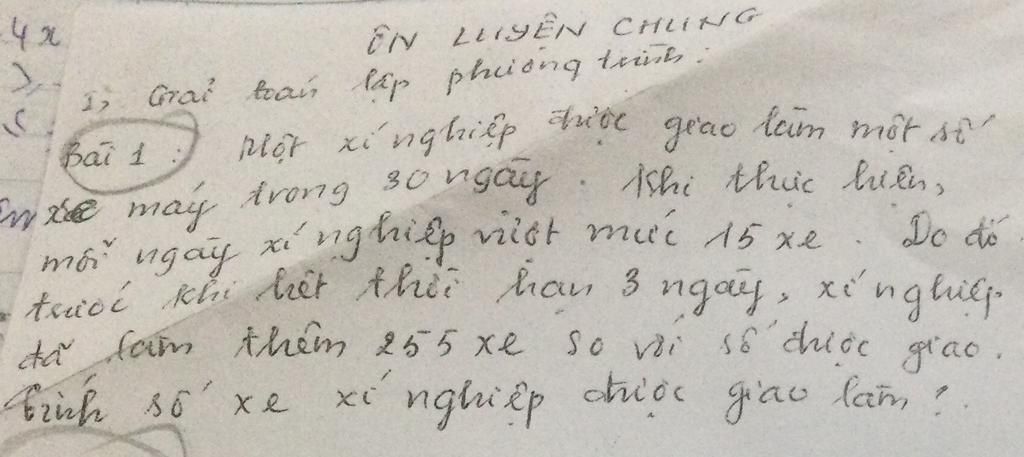 4x
ÔN LUYỆN CHUNG
1, Giải toán lập phương trình:
Bài 1: Một xí nghiệp được giao làm một số
xe máy trong 30 ngày. Khi thực hiện,
mỗi ngày xí nghiệp vượt mức 15 xe. Do đó
trước khi hết thời hạn 3 ngày, xí nghiệp
đã làm thêm 255 xe so với số được giao.
Tính số xe xí nghiệp được giao làm?